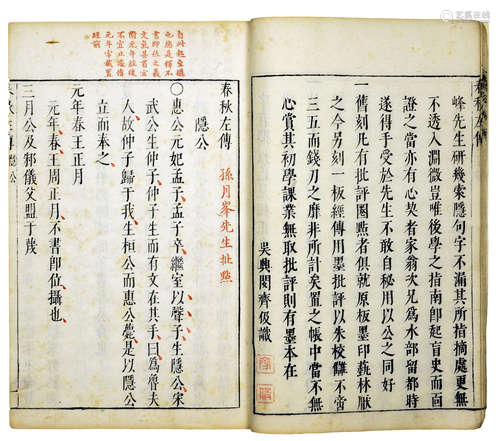 峰先生研幾索隱句字不漏其所指摘處更無
不透入淵微豈唯後學之指南卽起盲史而面
證之當亦有心契者家翁次兄爲水部留都時
一日得之於先生不敢自秘用以公之同好
舊刻凡有批評圈點者俱就原板墨印藝林厭
之今另刻一板經傳用墨批評以朱校讎不啻
三五而錢刀之靡非所計矣置之帳中當不無
心賞其初學課業無取批評則有墨本在
吳興閔齊伋識
春秋左傳
孫月峯先生批點
隱公
〇惠公元妃孟子孟子卒繼室以聲子生隱公宋
武公生仲子仲子生而有文在其手曰爲魯夫
人故仲子歸于我生桓公而惠公薨是以隱公
立而奉之
元年春王正月
元年春王周正月不書卽位攝也
三月公及邾儀父盟于蔑